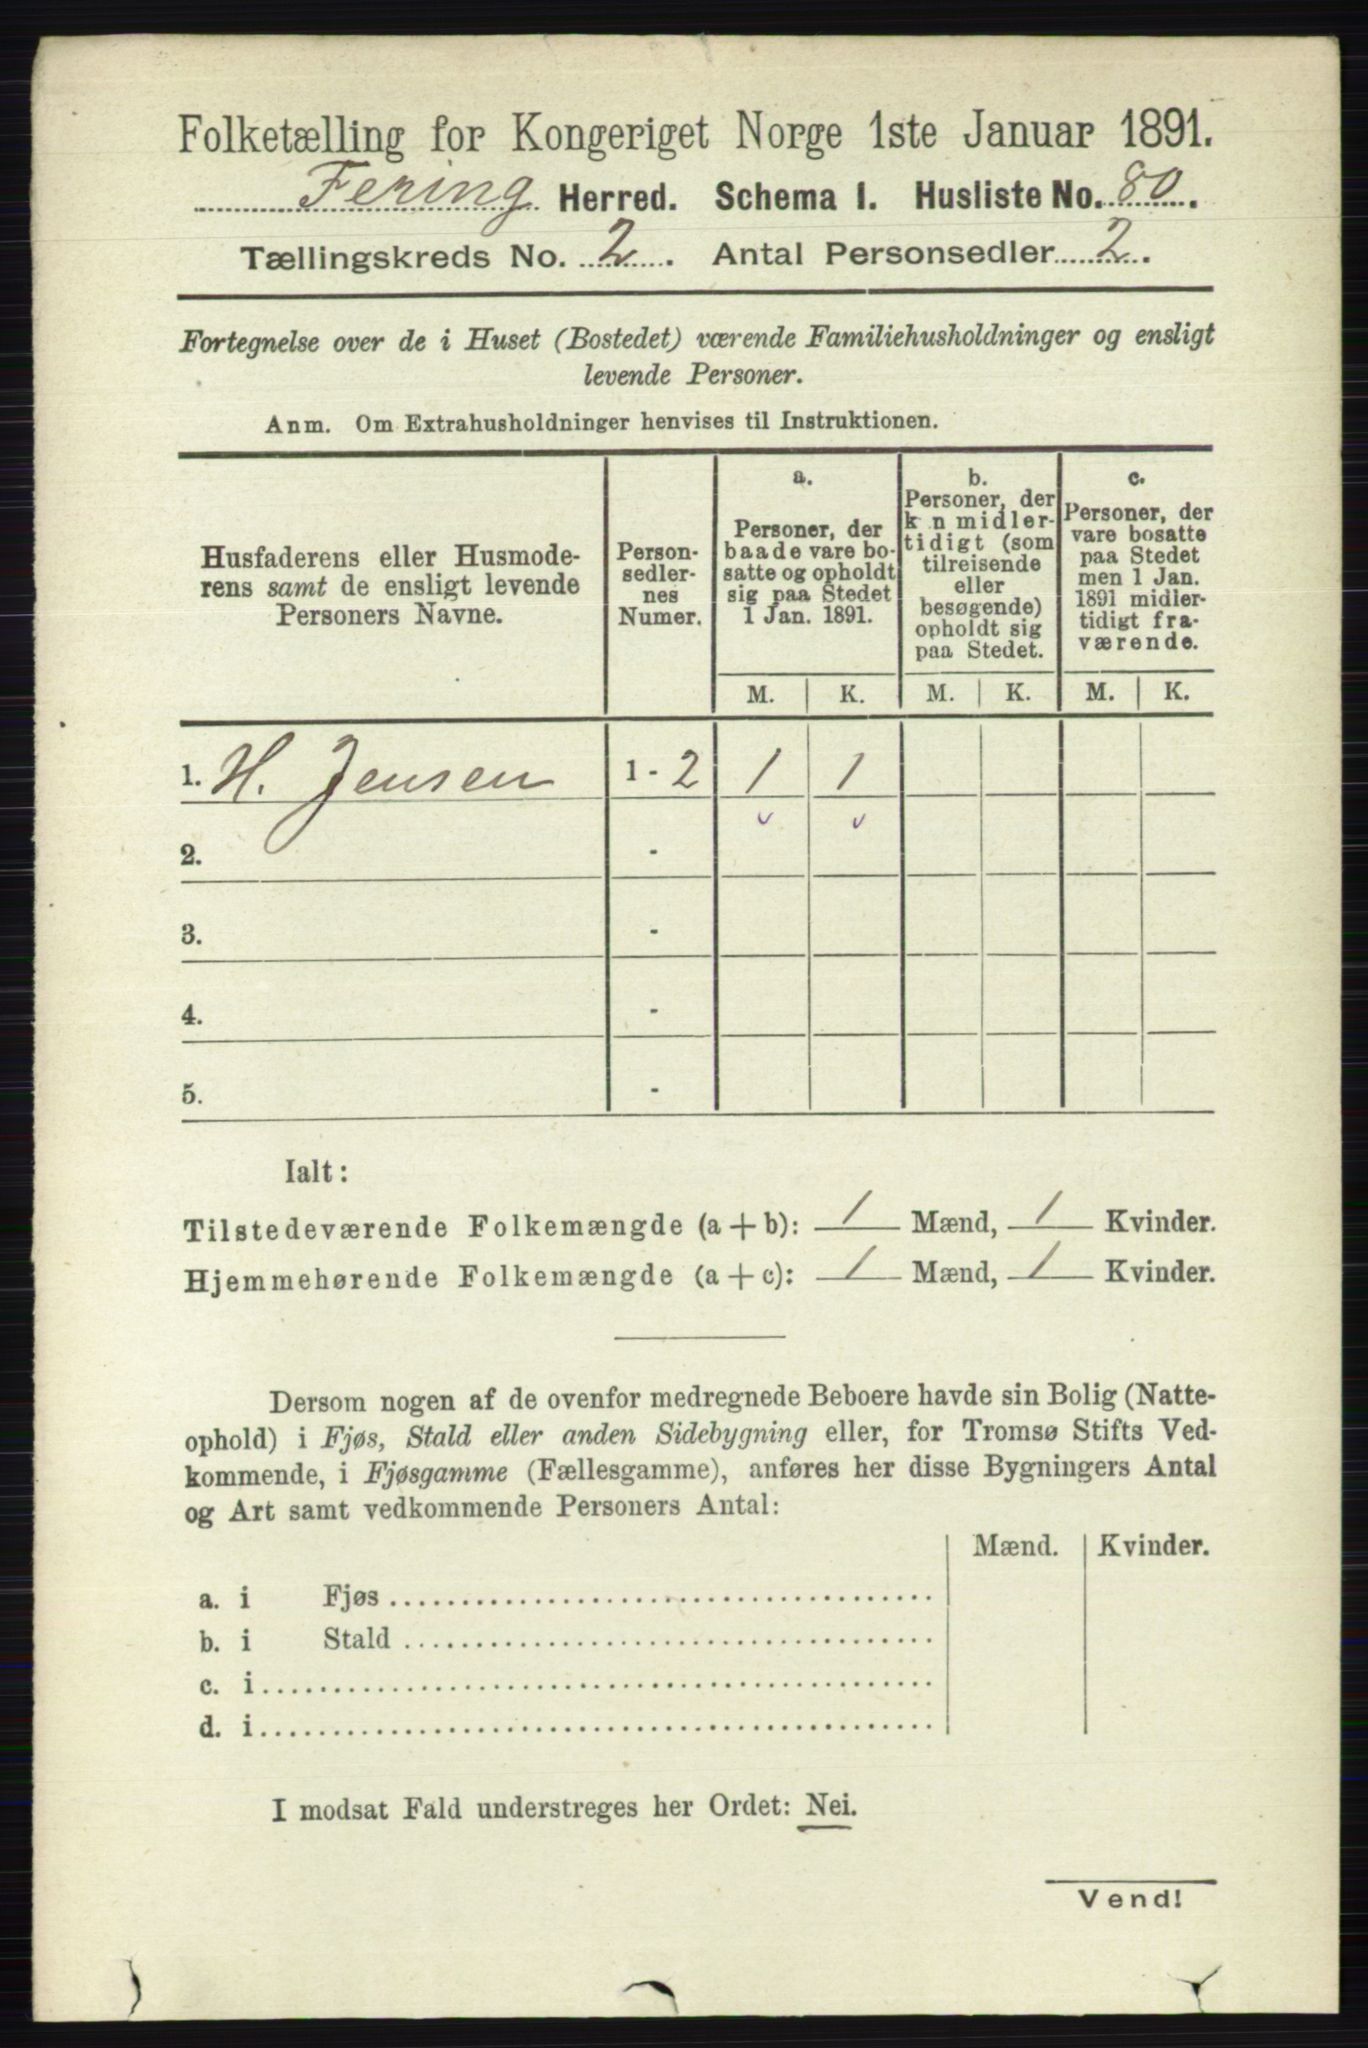 Folketælling for Kongeriget Norge 1ste Januar 1891.
Fering Herred. Schema 1. Husliste No. 80.
Tællingskreds No. 2. Antal Personsedler 2.
Fortegnelse over de i Huset (Bostedet) værende Familiehusholdninger og ensligt
levende Personer.
Anm. Om Extrahusholdninger henvises til Instruktionen.
Husfaderens eller Husmode-
rens samt de ensligt levende
Personers Navne.
Person-
sedler-
nes
Numer.
a.
Personer, der
baade vare bo-
satte og opholdt
sig paa Stedet
1 Jan. 1891.
b.
Personer, der
k n midler-
tidigt (som
tilreisende
eller
besøgende)
opholdt sig
paa Stedet.
c.
Personer, der
vare bosatte
paa Stedet
men 1 Jan.
1891 midler-
tidigt fra-
værende.
M. K. M. K. M. K.
1. H. Jensen 1 - 2 1 1
2. -
3. -
4. -
5. -
Ialt:
Tilstedeværende Folkemængde (a + b): 1 Mænd, 1 Kvinder.
Hjemmehørende Folkemængde (a + c): 1 Mænd, 1 Kvinder.
Dersom nogen af de ovenfor medregnede Beboere havde sin Bolig (Natte-
ophold) i Fjøs, Stald eller anden Sidebygning eller, for Tromsø Stifts Ved-
kommende, i Fjøsgamme (Fællesgamme), anføres her disse Bygningers Antal
og Art samt vedkommende Personers Antal:
Mænd. Kvinder.
a. i Fjøs
b. i Stald
c. i
d. i
I modsat Fald understreges her Ordet: Nei.
Vend!